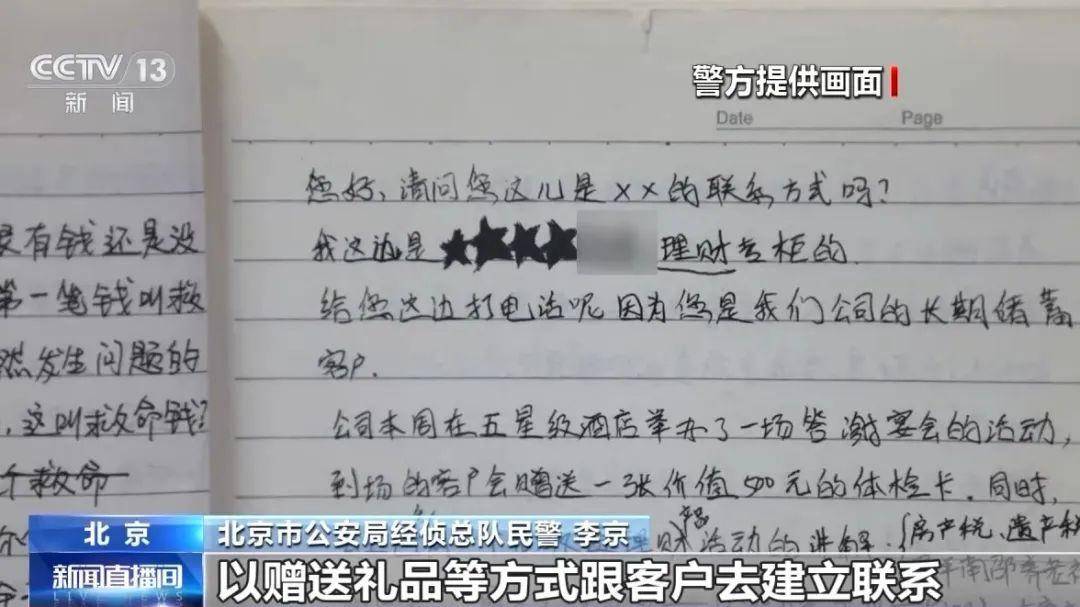 CCTV 13
新闻
警方提供画面
Date Page
您好,请问您这儿是××的联系方式吗?
我这边是 理财专柜的
给您这边打电话呢因为您是我们公司的长期储蓄
客户.
公司本周在五星级酒店举办了一场答谢宴会的活动,
到场的客户会赠送一张价值500元的体检卡.同时,
活动的讲解.(房产税、遗产税
有钱还是没
第一笔钱叫救
然发生问题的
,这叫救命钱?
个救命
北京
北京市公安局经侦总队民警 李京
新闻直播间
LIVE NEWS
以赠送礼品等方式跟客户去建立联系